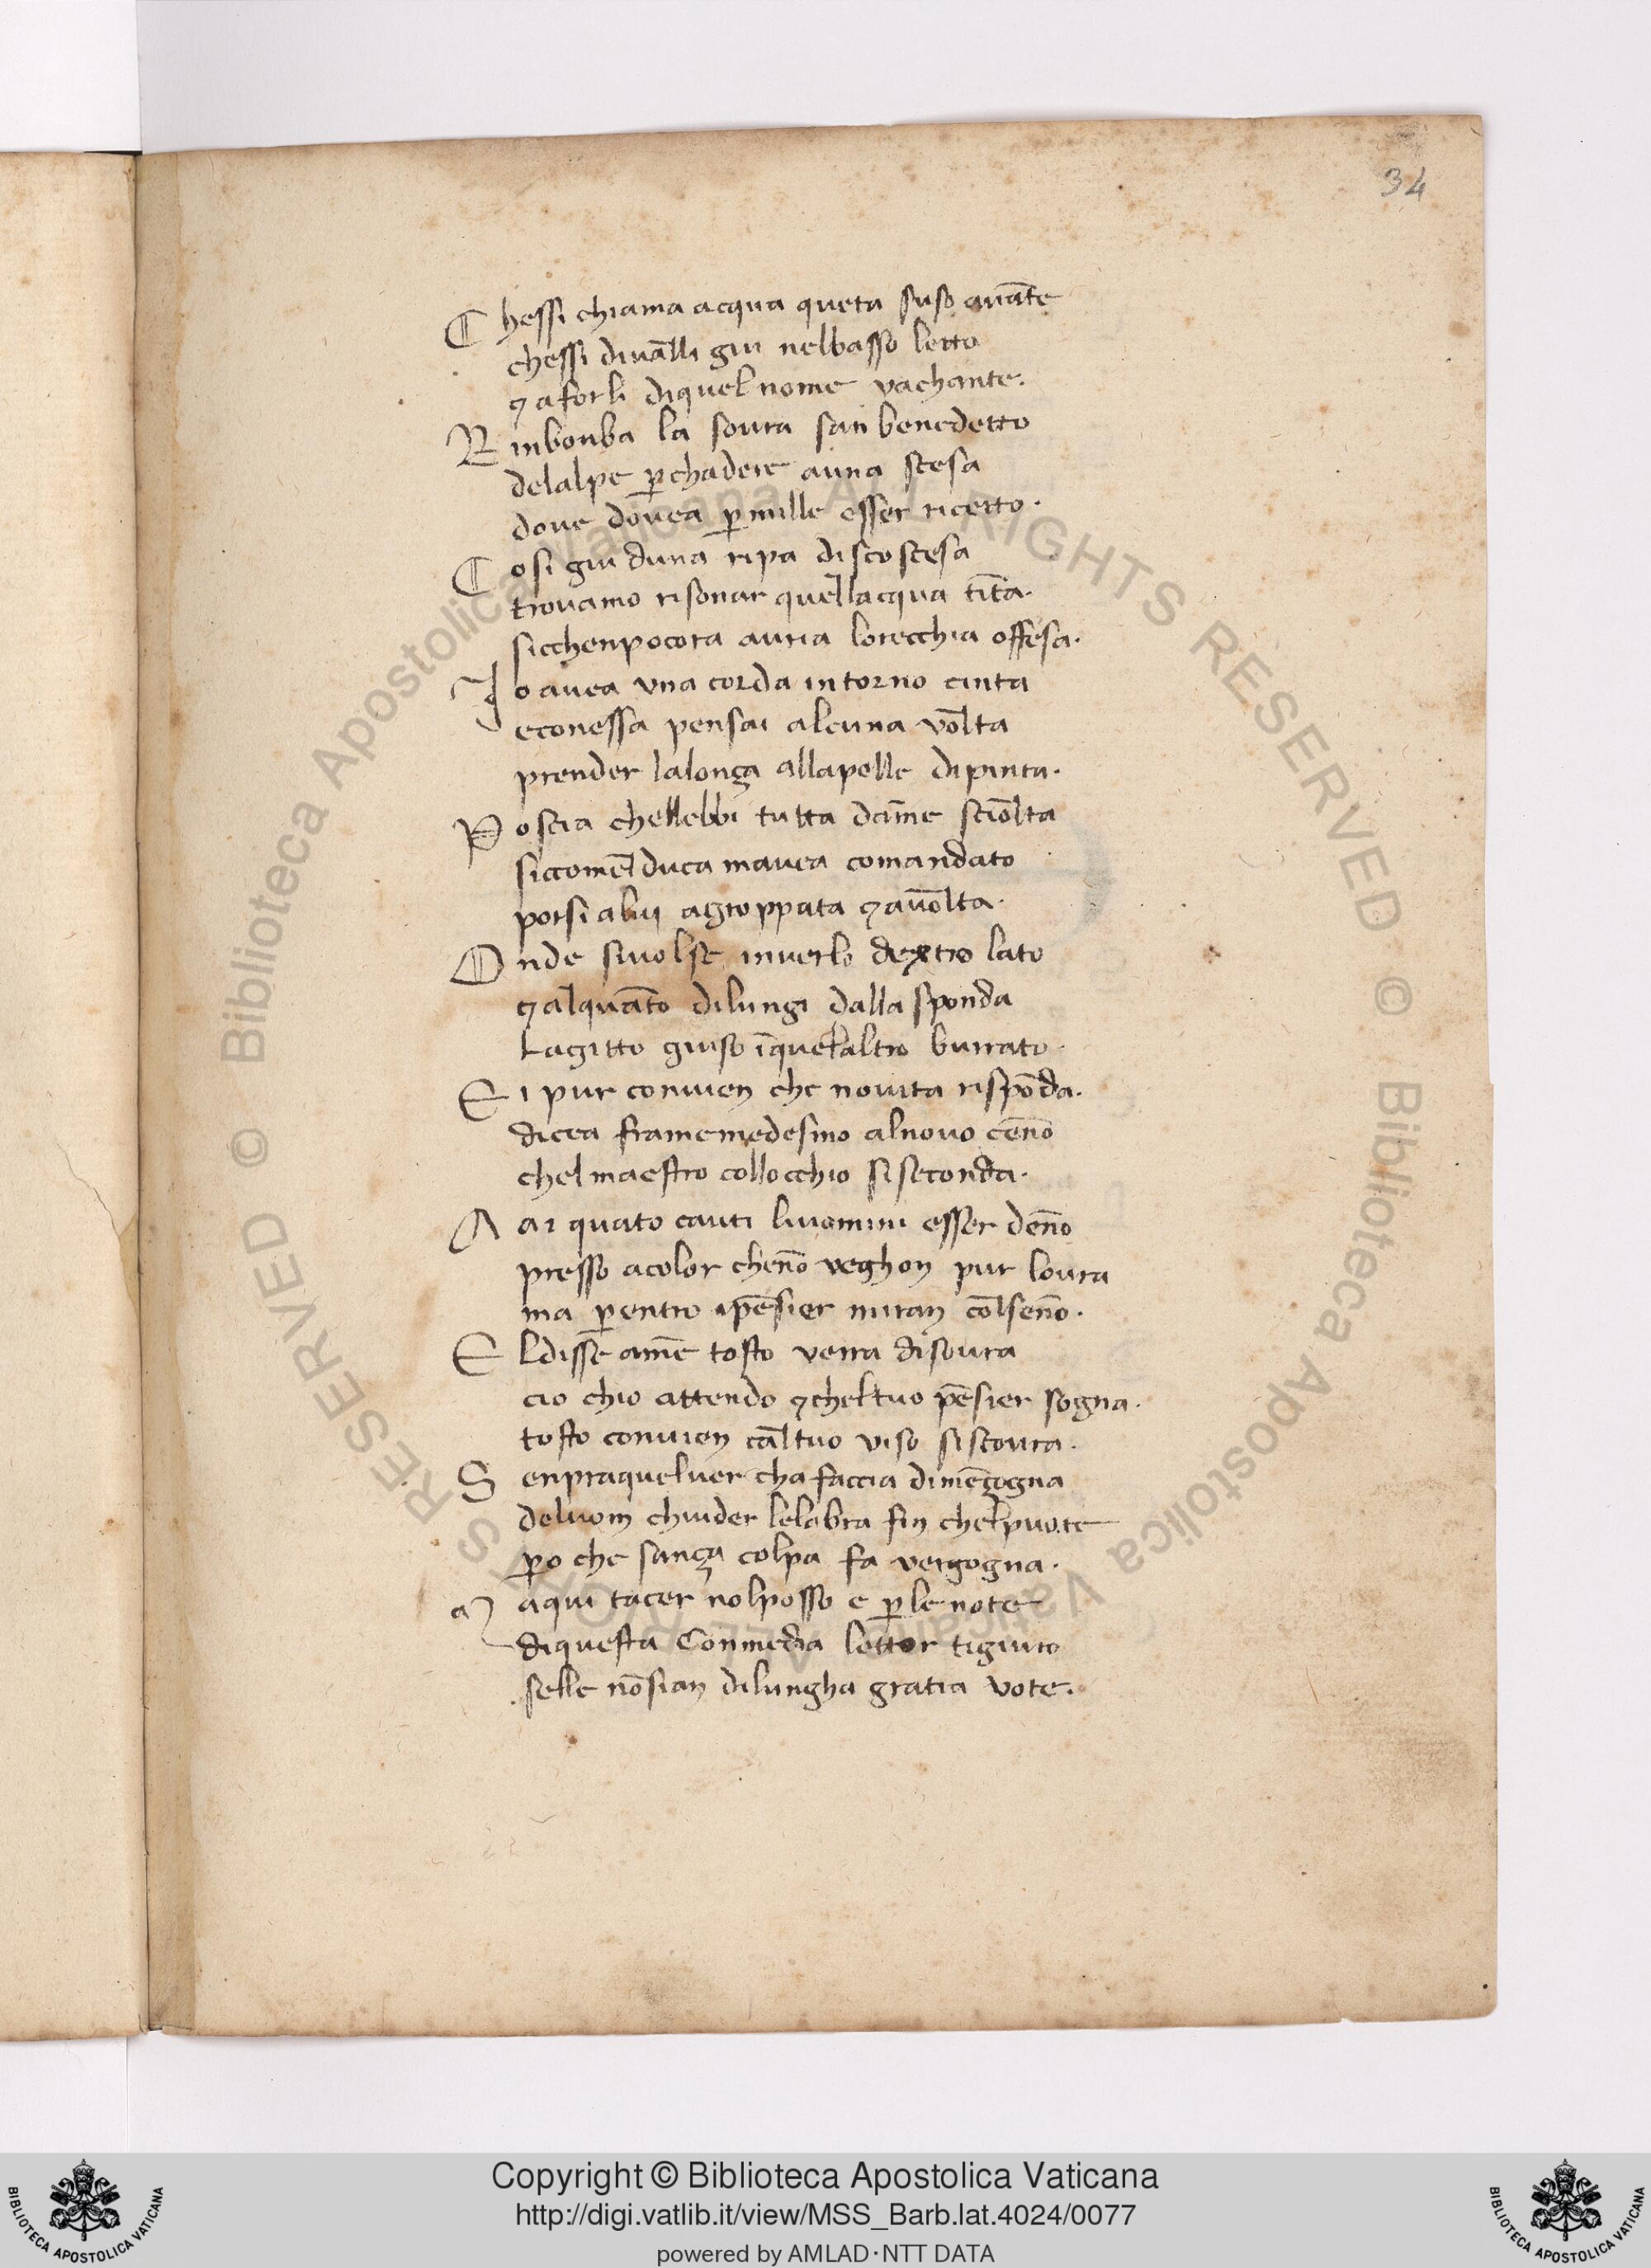 34
Chessi chiama acqua queta suso auāte
chessi diuālli giu nelbasso letto
⁊ aforli diquel nome vachante.
Rinbonba la soura san benedetto
delalpe ꝑchadere auna scesa
doue douea ꝑmille esser ricetto.
Cosi giu duna ripa discoscesa
trouamo risonar quellacqua tīta.
sicchenpocora auria lorecchia offesa.
Io auea vna corda intorno cinta
econessa pensai alcuna vōlta
prender lalonça allapelle dipinta.
Poscia chellebbi tutta dāme sciōlta
siccomēl duca mauea comandato
porsi alui agroppata ⁊ auōlta.
Onde siuolse inuerlo dextro lato
⁊ alquāto dilungi dalla sponda
Lagitto giuso īquelaltro burrato.
Ei pur conuien che nouita rispōda.
dicea framemedesmo alnouo cēno
chel maestro collocchio siseconda.
Aai quato cauti liuomini esser dēno
presso acolor chēno veghon pur loura
ma ꝑentro ipēsier miran cōlsēno.
Eldissē amē tosto verra disoura
cio chio attendo ⁊cheltuo pēsier sogna.
tosto conuien cāltuo viso siscoura.
Senpraqueluer cha faccia dimēçogna
deluom chiuder lelabra fin chelpuote
ꝑo che sança colpa fa vergogna.
Maqui tacer nolposso e ꝑ lenote
diquesta Conmedia lettor tigiuro
selle nōsian dilungha gratia vote.
© Biblioteca Apostolica Vaticana ALL RIGHTS RESERVED
© Biblioteca Apostolica Vaticana ALL RIGHTS RESERVED
Copyright © Biblioteca Apostolica Vaticana
http://digi.vatlib.it/view/MSS_Barb.lat.4024/0077
powered by AMLAD·NTT DATA
BIBLIOTECA APOSTOLICA VATICANA
BIBLIOTECA APOSTOLICA VATICANA